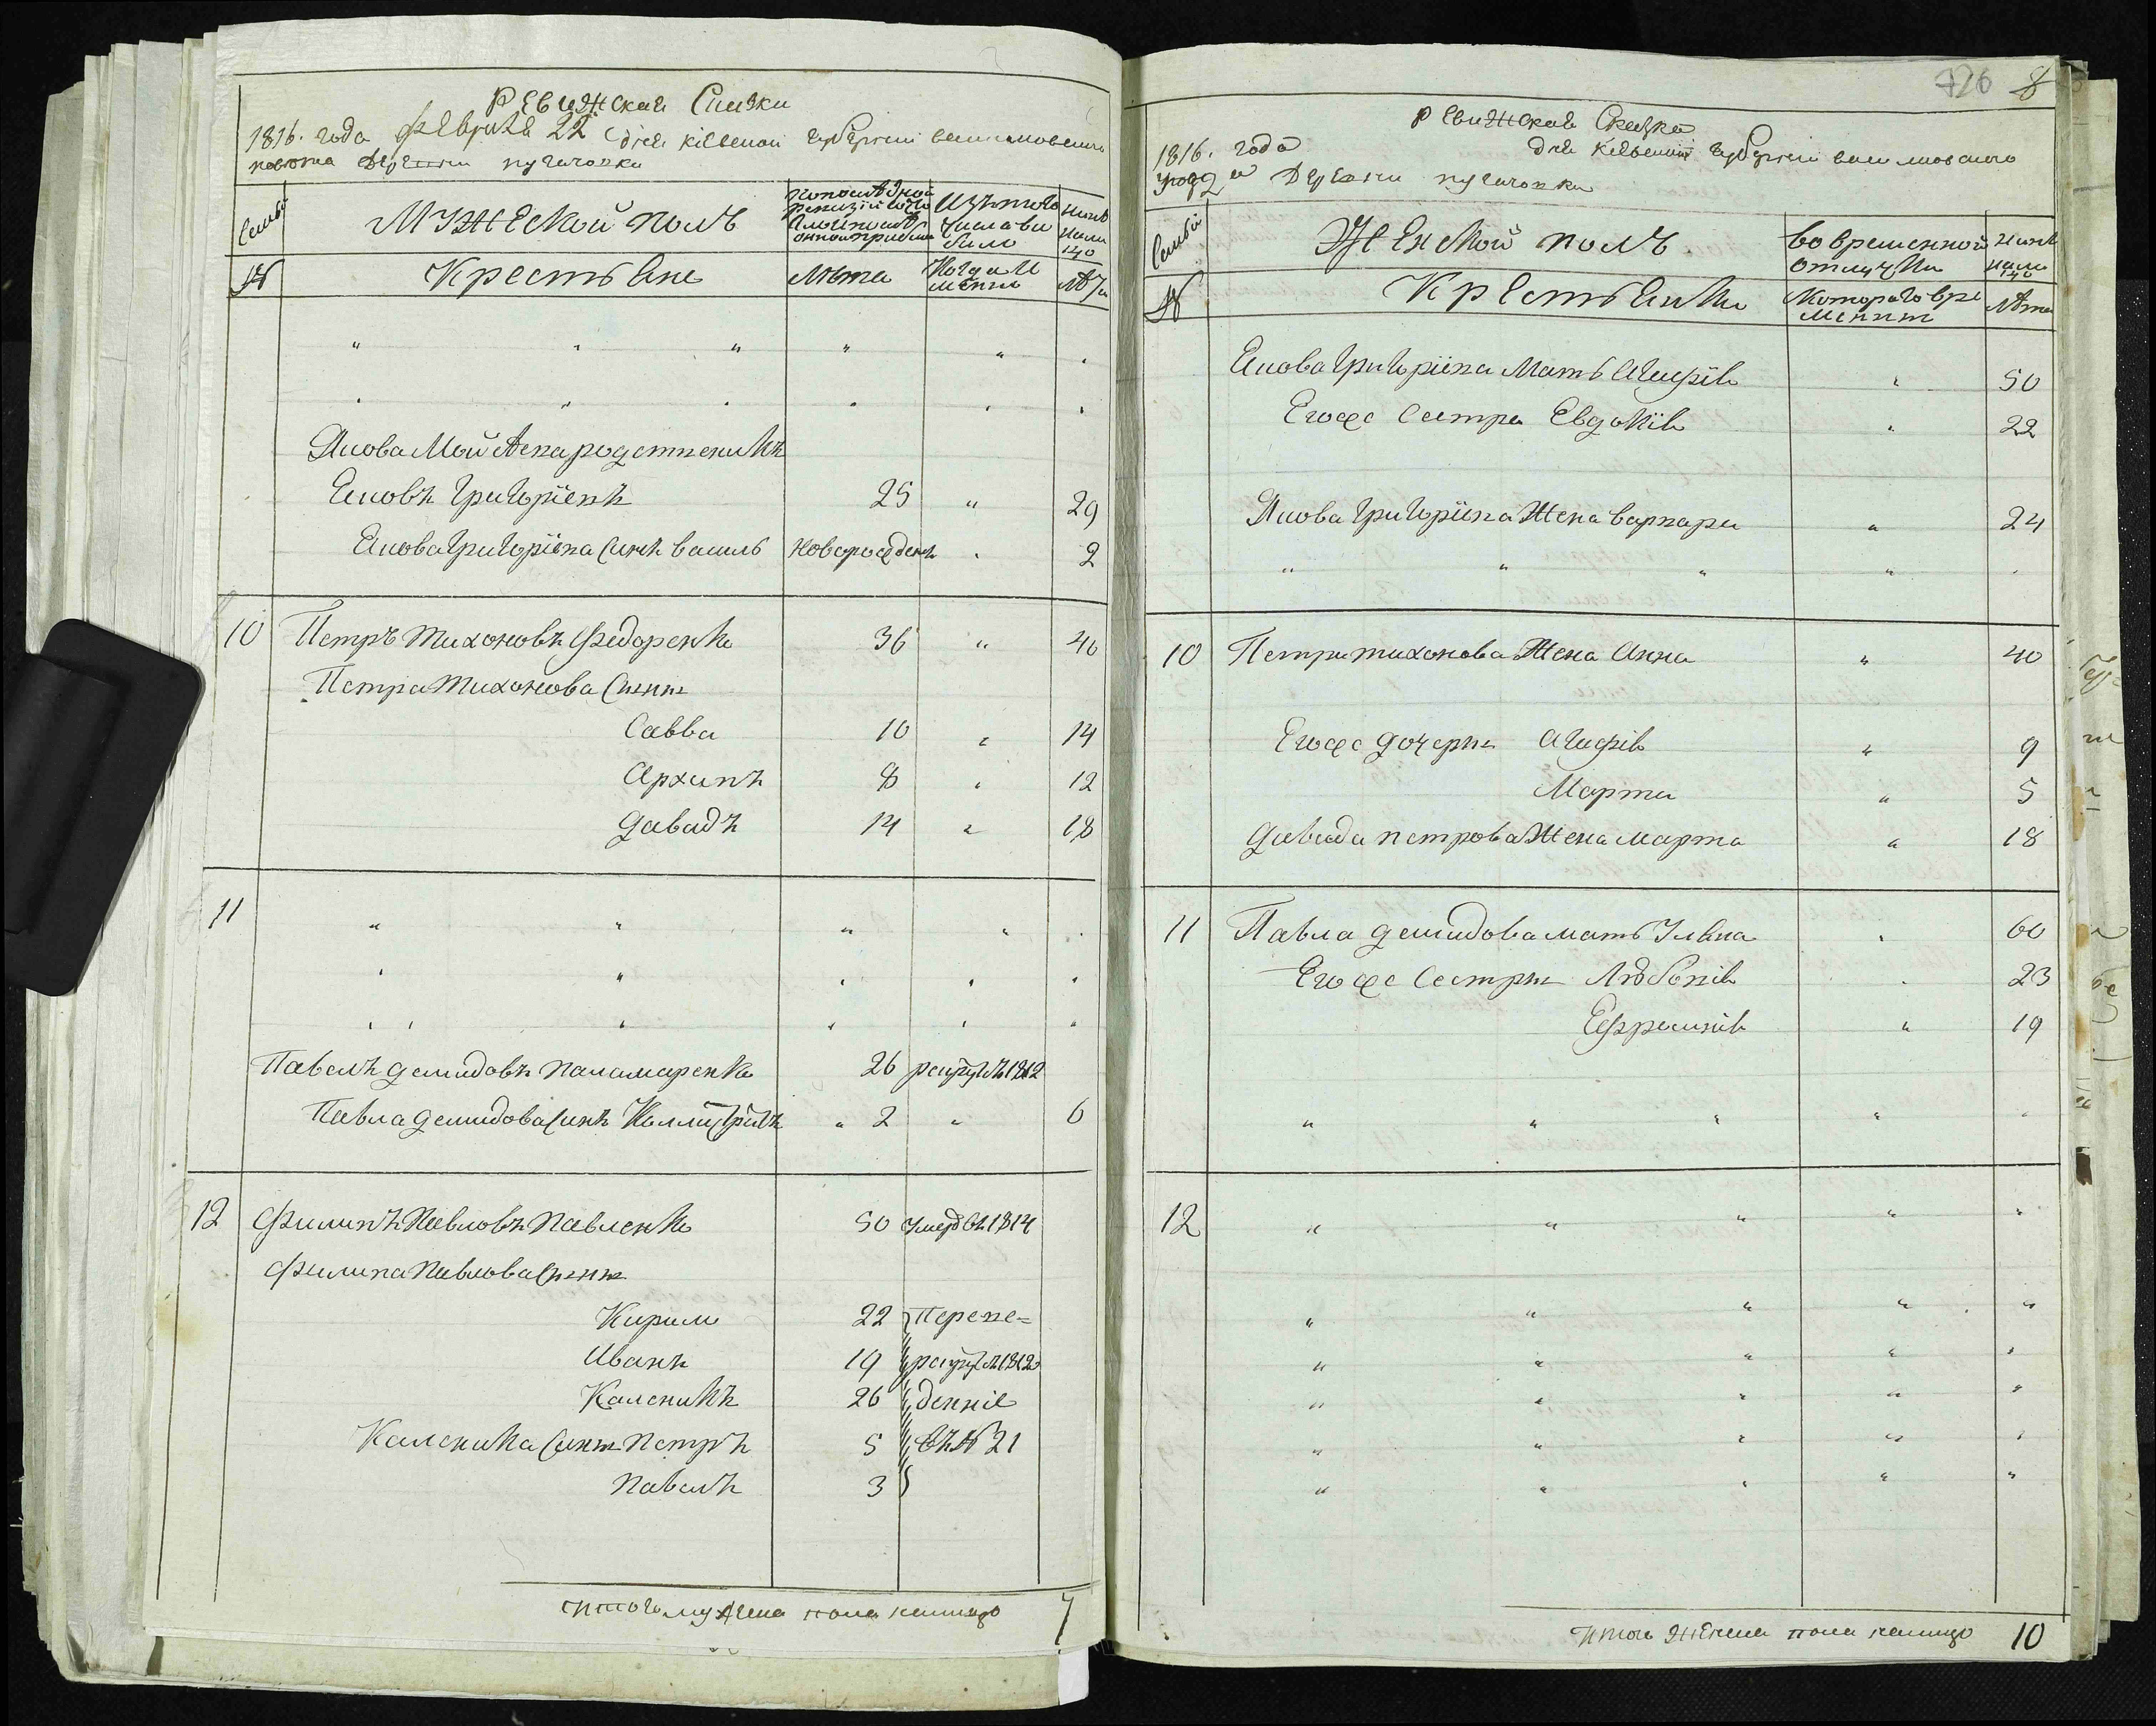 Ревижская Сказка
1816. года февраля 22 дня кіевской губерніи васильковского
повета Деревни пугачовки
Семьи
Мужеской полъ
По последной ревизіи состояло и после оной прибыло
Изъ того числа выбыло
Ныне налицо
№
Крестьяне
Лета
Когда именно
Лета
" " " " " "
" " " " " "
Якова Мойсеева родственникъ
Яковъ Григоріевъ 25 " 29
Якова Григоріева Синъ василь новорожденъ " 2
10 Петръ тихоновъ Федоренко 36 " 40
Петра тихонова Сыны
Савва 10 " 14
Архипъ 8 " 12
Давидъ 14 " 18
11 " " " " "
" " " " "
" " " " " "
Павелъ демидовъ паламаренко 26 рекрутъ 1812
Павла демидова Синъ Каллистратъ " 2 " 6
12 Филипъ Павловъ Павленко 50 умеръ въ 1814
Филипа Павлова Сыны
Кирило 22 Переве=
Иванъ 19 рекрутъ 1812
Каленикъ 26 денніе
Каленика Сины Петръ 5 въ № 21
Павелъ 3
Итого мужеска пола налицо 7
726 8
Ревижская Сказка
1816. года дня кіевской губерніи васильковского
уезда Деревни пугачовки
Семьи
Женской полъ
Во временной отлучки
Ныне налицо
№
Крестьянки
Которого времени
Лета
Якова Григоріева Мать Агафія " 50
Его же Сестра Евдокія " 22
Якова Григоріева Жена варвара " 24
" " " " "
10 Петра тихонова Жена Анна " 40
Его же дочери Агафія " 9
Марта " 5
Давида петрова Жена марта " 18
11 Павла демидова мать Уляна " 60
Его же Сестры Любовія " 23
Ефросинія " 19
" " " " "
12 " " " " "
" " " " "
" " " " "
" " " " "
" " " " "
" " " " "
Итого Женска пола налицо 10